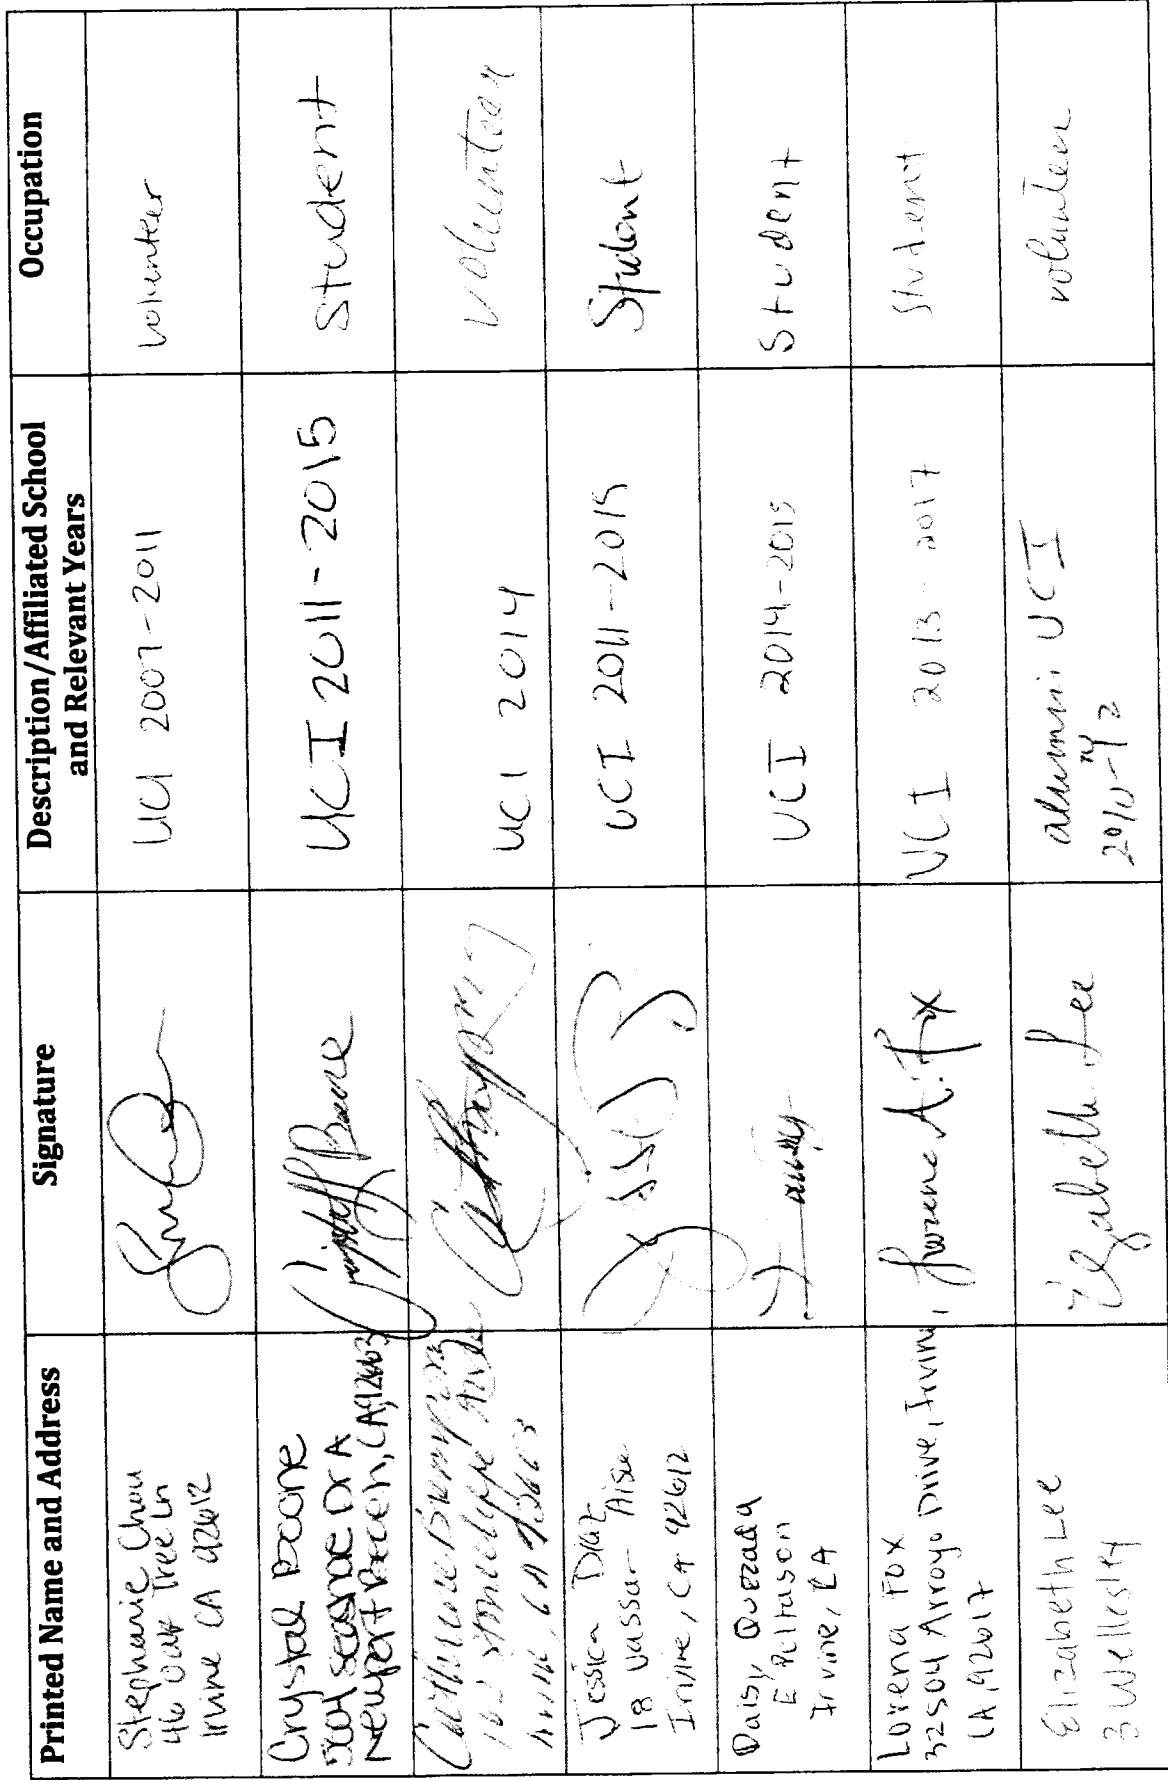 Printed Name and Address
Signature
Description/Affiliated School
and Relevant Years
Occupation
Stephanie Chou
46 Oak Tree Ln
Irvine CA 92612
UCI 2007-2011
volunteer
Crystal Boone
Seashore Dr A
Newport Beach, CA, 92663
UCI 2011-2015
Student
UCI 2014
volunteer
Jessica Diaz
18 Vassar Aisle
Irvine, CA 92612
UCI 2011-2015
Student
Daisy Quezada
E Peltason
Irvine, CA
UCI 2014-2015
Student
Lorena Fox
32504 Arroyo Drive, Irvine,
CA, 92617
Lorena A. Fox
UCI 2013-2017
Student
Elizabeth Lee
3 Wellesley
Elizabeth Lee
alumni UCI
volunteer